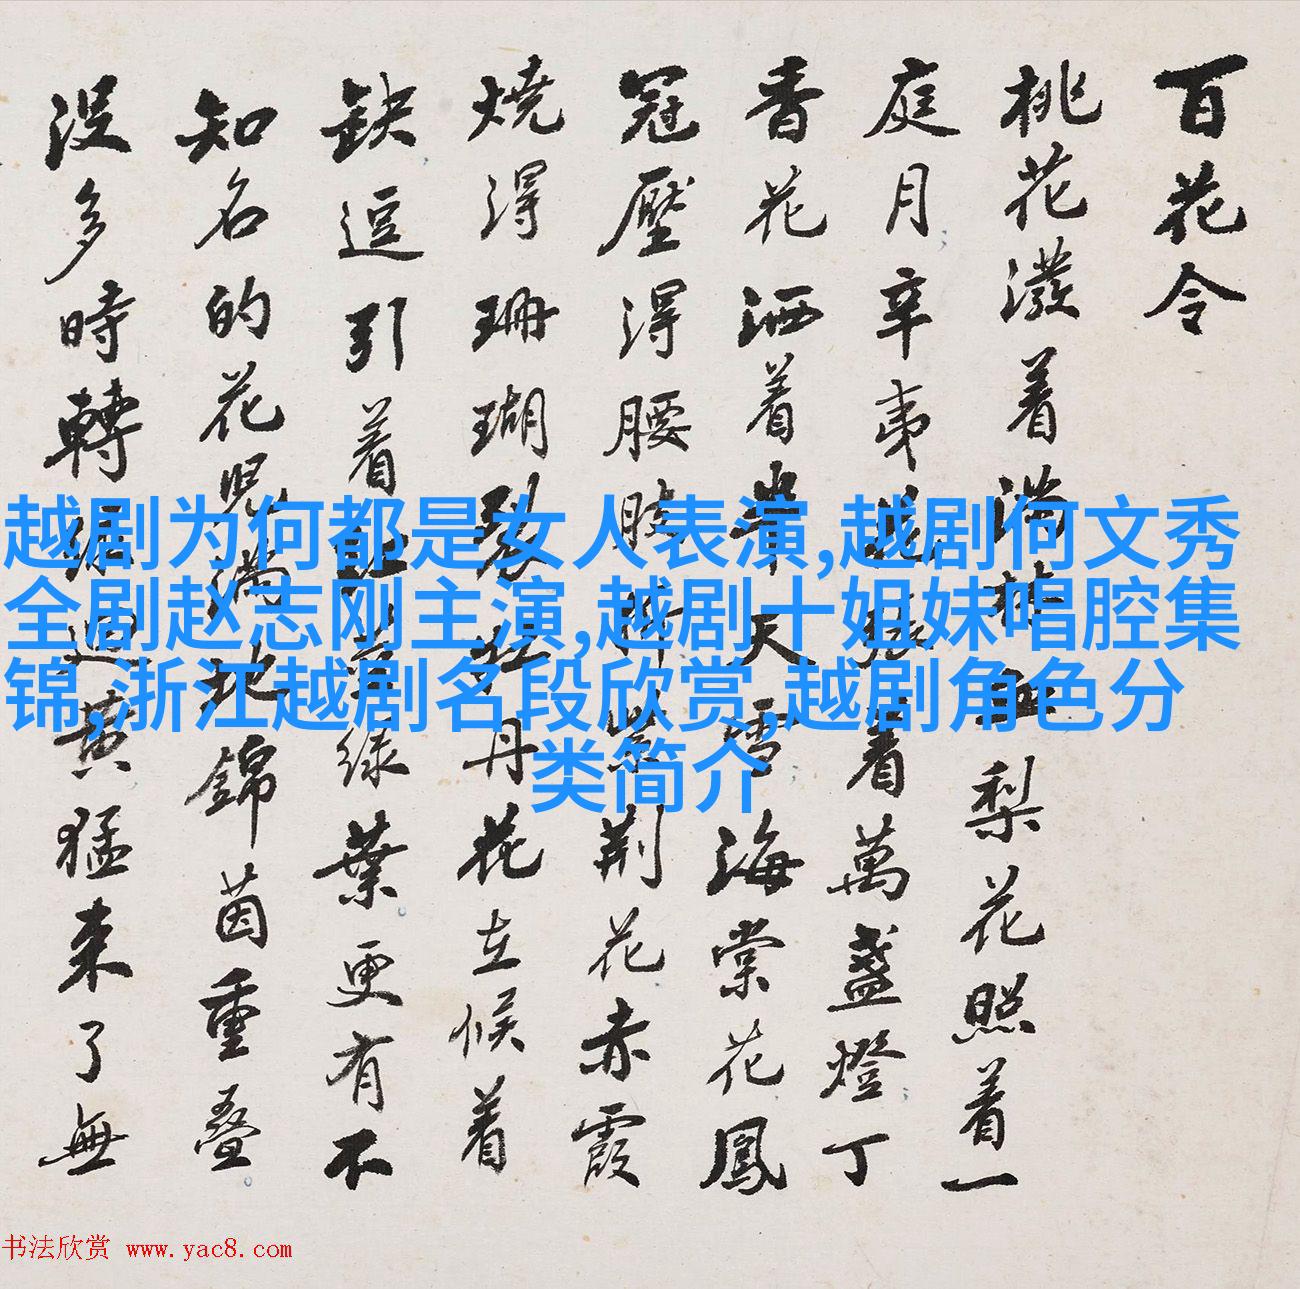 百花令
桃花潑着满林血梨花照着一
庭月辛夷着萬盞燈丁
香花洒着半天雪海棠花鳳
冠壓得腰肢折紫荆花赤霞
燒得珊瑚裂牡丹花立候着
缺逗引着綠葉更有不
知名的花児满地錦茵重叠
没多時轉緑迴黄猛来了無
越剧为何都是女人表演,越剧何文秀
全剧赵志刚主演,越剧十姐妹唱腔集
锦,浙江越剧名段欣赏,越剧角色分
类简介
书法欣赏 www.yac8.com